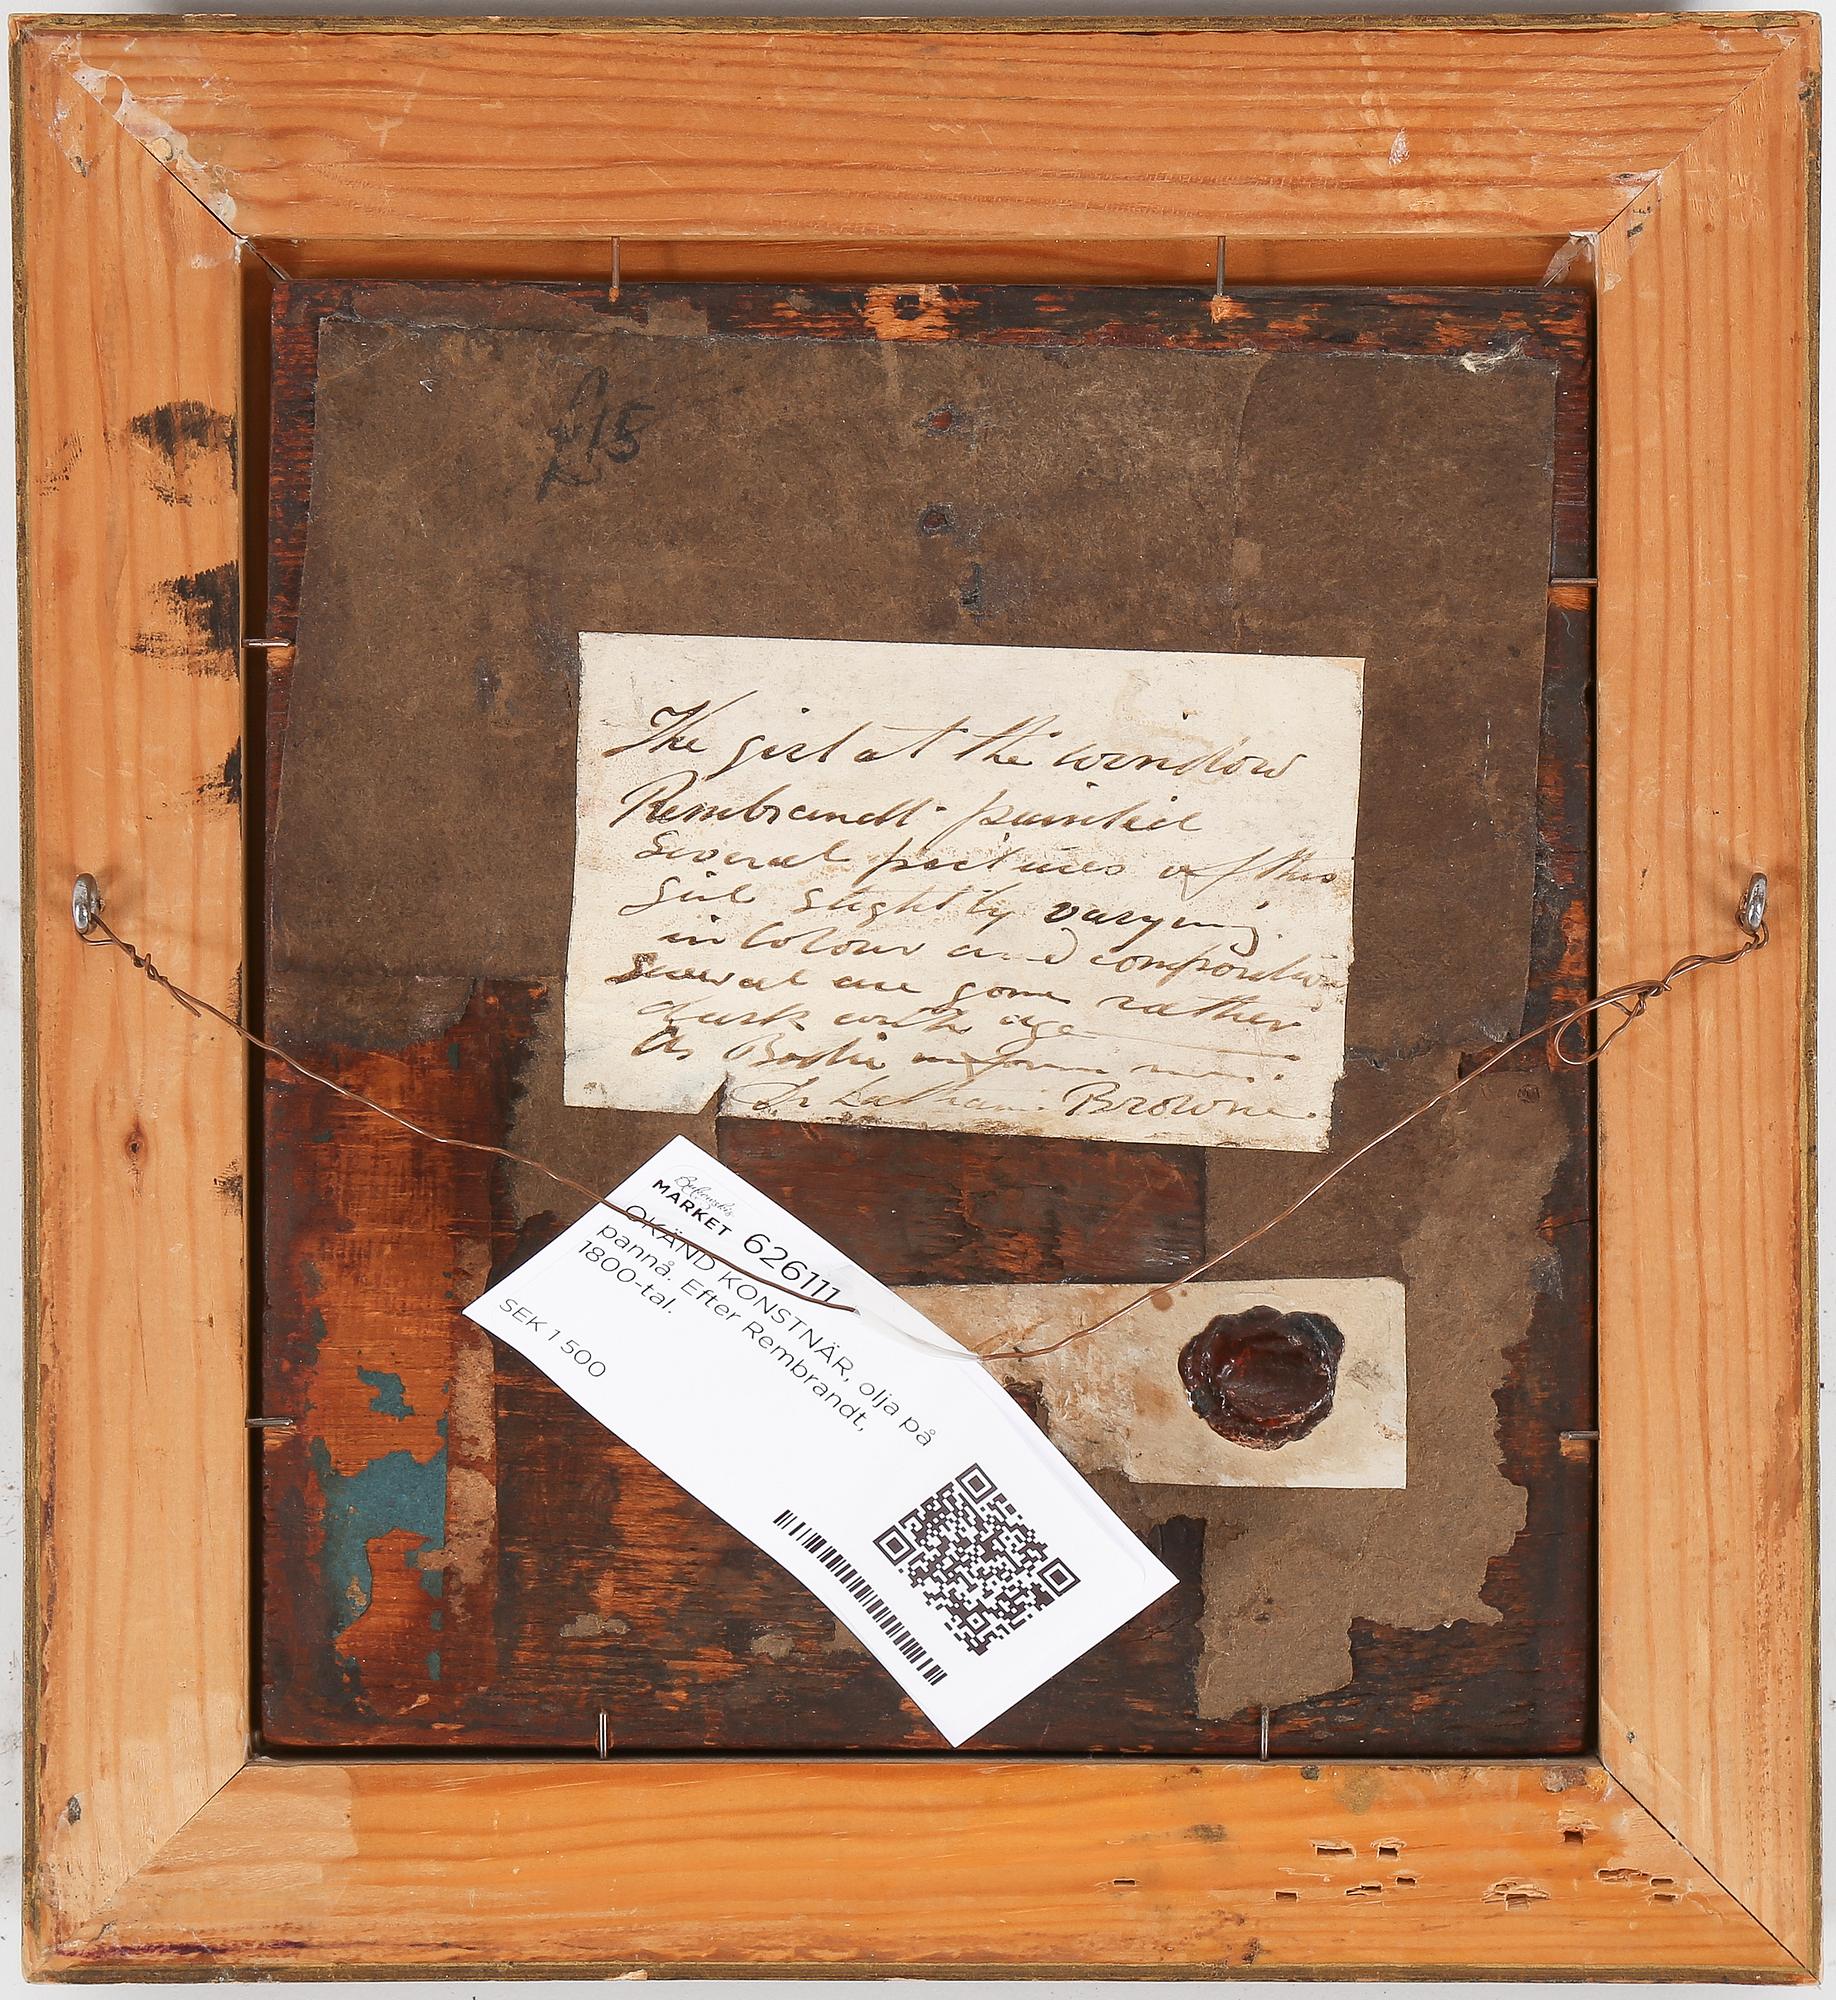 £15
The girl at the window
Rembrandt painted
Several pictures of this
girl slightly varying
in Colour and composition
several are gone rather
dark with age
As Bodie inform me.
Dr Latham Browne.
Bukowskis
MARKET 626111
OKÄND KONSTNÄR, olja på
pannå. Efter Rembrandt,
1800-tal.
SEK 1 500